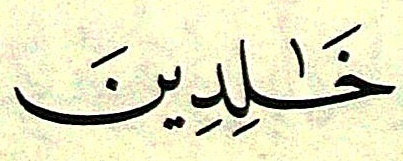 خَـٰلِدِينَ